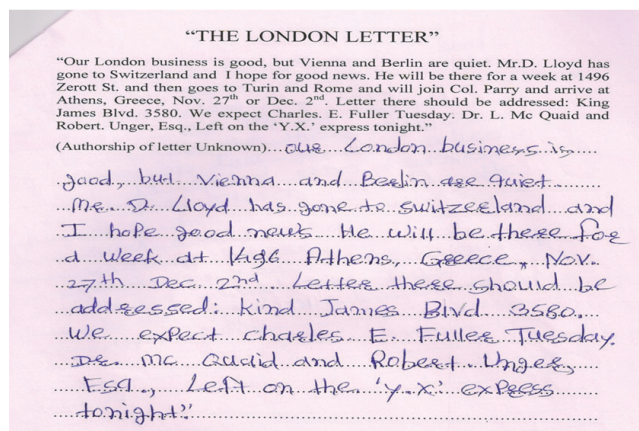 "THE LONDON LETTER"
"Our London business is good, but Vienna and Berlin are quiet. Mr.D. Lloyd has
gone to Switzerland and I hope for good news. He will be there for a week at 1496
Zerott St. and then goes to Turin and Rome and will join Col. Parry and arrive at
Athens, Greece, Nov. 27th or Dec. 2nd. Letter there should be addressed: King
James Blvd. 3580. We expect Charles. E. Fuller Tuesday. Dr. L. Mc Quaid and
Robert. Unger, Esq., Left on the 'Y.X.' express tonight."
(Authorship of letter Unknown)... our London business is
good, but Vienna and Berlin are quiet
Mr. D. Lloyd has gone to switzerland and
I hope good news He will be there for
a week at 1496 Athens, Greece, Nov.
27th Dec. 2nd Letter there should be
addressed: Kind James Blvd 3580.
We expect charles E. Fuller Tuesday.
Dr. Mc Quaid and Robert. Unger,
Esq., Left on the 'Y.X.' express
tonight"